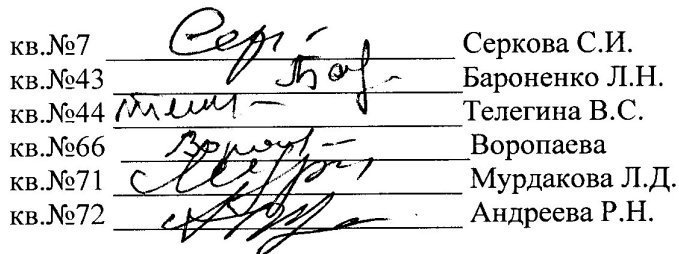 кв.№7 Серкова С.И.
кв.№43 Бароненко Л.Н.
кв.№44 Телегина В.С.
кв.№66 Воропаева
кв.№71 Мурдакова Л.Д.
кв.№72 Андреева Р.Н.